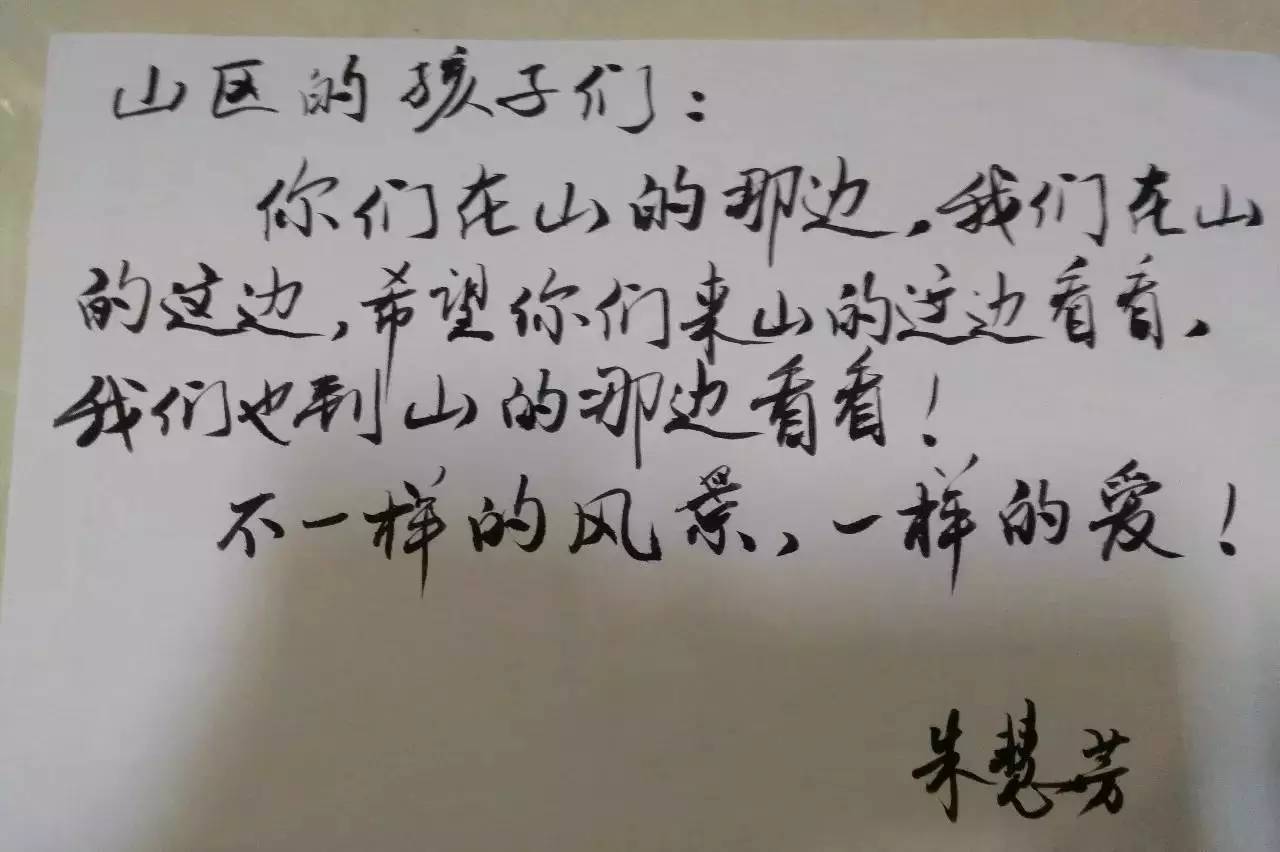 山区的孩子们：
你们在山的那边，我们在山
的这边，希望你们来山的这边看看，
我们也到山的那边看看！
不一样的风景，一样的爱！
朱慧芳